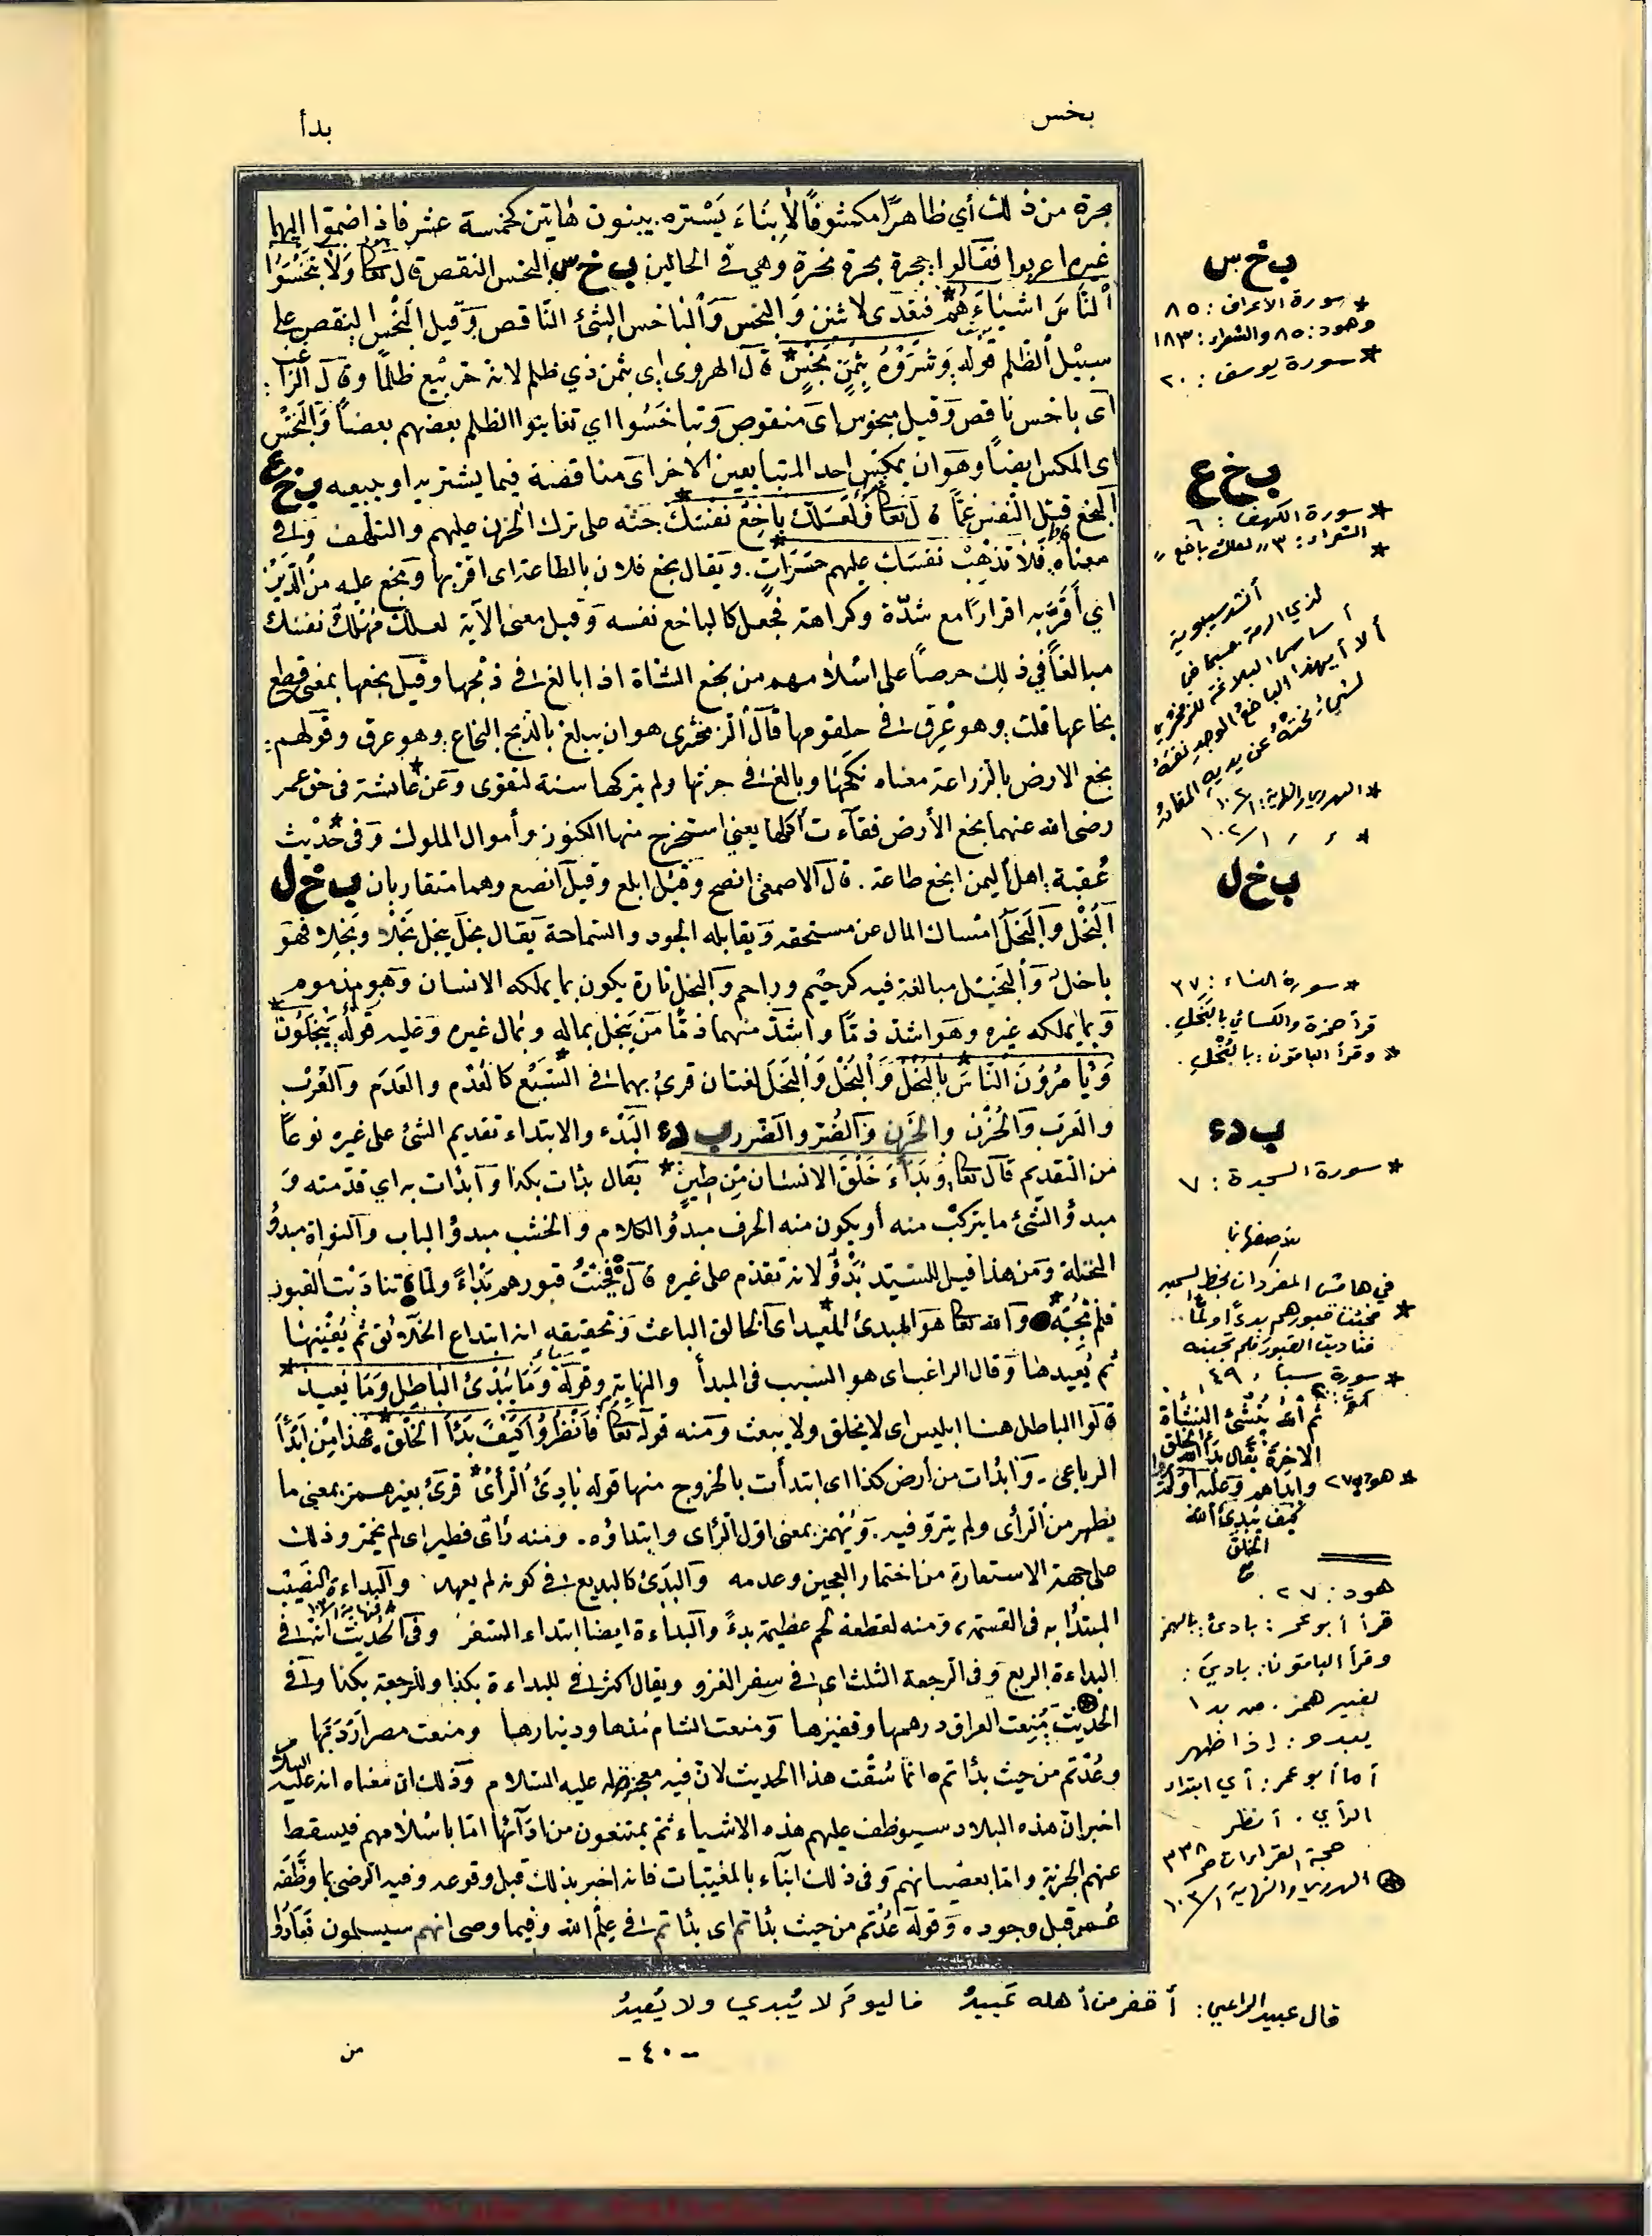 بخس
بدأ
بحرة من ذلك أي ظاهرًا مكشوفًا لا بناء يستره. يبنون هاتين كخمسة عشر فاذا ضموا اليهما
غيرهما اعربوا فقالوا: بحرة نحرة وهي في الحالين ب خ س البخس النقص قال تعالى وَلَا تَبْخَسُوا
النَّاسَ اشْيَاءَهُمْ* فتعدى لاثنين وَالبخس وَالباخس الشئ الناقص وَقيل البخس النقص على
سبيل الظلم قوله وَشَرَوْهُ بِثَمَنٍ بَخْسٍ* قال الهروى اى بثمن ذي ظلم لانه حر بيع ظلمًا وقال الراغب:
اى باخس ناقص وَقيل مبخوس اى منقوص وَتباخسوا اي تغابنوا الظلم بعضهم بعضًا وَالبخس
اى المكس ايضًا وهو ان يمكس احد المتبايعين الاخر اى مناقصة فيما يشتريه او يبيعه ب خ ع
البخع قتل النفس غمًّا قال تعالى فَلَعَلَّكَ بَاخِعٌ نَفْسَكَ* حثه على ترك الحزن عليهم والتلهف وفى
معناه فَلَا تَذْهَبْ نَفْسُكَ عليهم حَسَرَاتٍ. وَيقال بخع فلان بالطاعة اى اقر بها وبخع عليه من الدين
اي أَقَرَّ به اقرارًا مع شدّة وكراهة فجعل كالباخع نفسه وقيل معنى الآية لعلك مُهْلِكٌ نفسك
مبالغًا في ذلك حرصًا على اسلامهم من بخع الشاة اذا بالغ فى ذبحها وقيل بخعها بمعنى قطع
بخاعها قلت: وهو عِرق فى حلقومها قال الزمخشرى هو ان يبلغ بالذبح البخاع: وهو عرق وقولهم:
بخع الارض بالزراعة معناه نكحها وبالغ فى حرثها ولم يتركها سنة لتقوى وَعن عائشة* فى حق عمر
رضى الله عنهما بخع الأرض فقآءت أكلها يعني استخرج منها الكنوز وأموال الملوك وفى حديث*
عُقبة: اهل اليمن ابخع طاعة. قال الاصمعى انصح وقيل ابلغ وقيل انصع وهما متقاربان ب خ ل
البُخْل وَالبَخَل امْساك المال عن مستحقه وَيقابله الجود والسماحة يقال بخل يبخل بُخْلًا وبَخَلًا فهو
باخل وَالبخيل مبالغة فيه كرحيم وراحم وَالبخل تارة يكون بما يملكه الانسان وَهو مذموم
وَبما يملكه غيره وهو اشد ذمًّا واشدّ منهما ذمًّا مَن يبخل بماله وبمال غيره وعليه قوله: يَبْخَلُونَ*
وَيَأْمُرُونَ النَّاسَ بِالبُخْلِ* وَالْبُخْل وَالْبَخَل لغتان قرئ بهما فى السبع كالعُدْم والعَدَم والعُرْب
والعَرَب وَالحُزْن والحَزَن وَالضُّرّ والضَّرر ب د ء البَدْء والابتداء تقديم الشئ على غيره نوعًا
من التقديم قال تعالى وَبَدَأَ خَلْقَ الانسَانِ مِنْ طِينٍ* يقال بدأت بكذا وَابدأت به اي قدّمته وَ
مبدؤ الشئ ما يتركب منه أو يكون منه الحرف مبدؤ الكلام والخشب مبدؤ الباب والنواة مبدؤ
النخلة وَمن هذا قيل للسيّد بَدْؤٌ لانه تقدّم على غيره قال فَجِئْتُ قبورهم بَدْاءً ولَمّا فناديت القبور
فلم تُجِبْنَهْ* وَالله تعالى هو المبدئ المُعيد اى الخالق الباعث وَتحقيقه انه ابتداع الخلائق ثم يُفنيها
ثم يُعيدها وَقال الراغب اى هو السبب فى المبدأ والنهاية وقوله وَمَا يُبْدِئُ الباطِلُ وَمَا يُعيدُ*
قالوا الباطل هنا ابليس اى لا يخلق ولا يبعث وَمنه قوله تعالى فَانْظُرُوا كَيْفَ بَدَأَ الْخَلْقَ* فهذا مِنْ أبْدَأَ
الرباعى. وَابدأت من أرض كذا اى ابتدأت بالخروج منها قوله بَادِئَ الرأيْ* قرئ بغير همز بمعنى ما
يظهر من الرأى ولم يتروّ فيه. وَبُهمز بمعنى اول الرأى وابتداؤه. ومنه رأى فطير اى لم يختمر وذلك
على جهة الاستعارة من اختمار العجين وعدمه والبَدِئ كالبديع فى كونه لم يعهد. والبداءة النصيب
المبتدأ به فى القسمة، وَمنه لقطعة لحم عظيمة بدءٌ والبداءة ايضا ابتداء السفر وفى الحديث انه فى
البداءة الربع وَفى الرجعة الثلث اى فى سفر الغزو ويقال اكثر فى للبداءة بكذا وللرجعة بكذا وفى
الحديث مُنِعت العراق درهمها وقفيزها وَمنعت الشام مُدها ودينارها ومنعت مصر اَرْدَبَّها
وعُدتم من حيث بدأتم. انّما سُقت هذا الحديث لان فيه معجزة له عليه السلام وَذلك ان معناه انه عليه السلام
اخبر ان هذه البلاد سيوظف عليهم هذه الاشياء ثم يمتنعون من ادآئها امّا باسلامهم فيسقط
عنهم الجزية وامّا بعصيانهم وَفى ذلك انبآء بالمغيبات فانه اخبر بذلك قبل وقوعه وفيه الرضى بما وظّفه
عُمر قبل وجوده وَقوله عُدْتم من حيث بدأتم اى بدأتم فى عِلْم الله وفيما وصى انهم سيسلمون فعَادُوا
ب خ س
* سورة الاعراف: ٨٥
وهود: ٨٥ والشعراء: ١٨٣
* سورة يوسف: ٢٠
ب خ ع
* سورة الكهف: ٦
* الشعراء: ٣ «لعلك باخع»
أنشد سيبويه
لذي الرمة. كما في
أساس البلاغة للزمخشري
ألا أيهذا الباخع الوجد نفسه
لشيء نحته عن يديه المقادر
* الهروي والنهاية: ١٠٢/١
* ، ، ١٠٢/١
ب خ ل
* سورة النساء: ٣٧
قرأ حمزة والكسائي بالبَخَلِ.
* وقرأ الباقون: بالبُخْلِ.
ب د ء
* سورة السجدة: ٧
في هامش المفردات بخط السمين
* فجئت قبورهم بدءًا ولمّا..
فناديت القبور فلم تجبنه
* سورة سبأ، ٤٩
ثم الله يُنْشئ النشأة
الاخرة
* هود: ٢٧
كيف يبدئ الله
الخلق
هود: ٢٧.
قرأ أبو عمر: بادئ: بالهمز
وقرأ الباقون: بادي:
بغير همز. من بدا
يبدو: إذا ظهر
أما أبو عمر: أي ابتداء
الرأي. أنظر
حجة القراءات ص ٣٣٨
الهروي والنهاية ١٠٣/١
قال عبيد الراعي: أقفر من أهله عَبيدُ فاليومَ لا يُبدي ولا يُعيدُ
- ٤٠ -
من